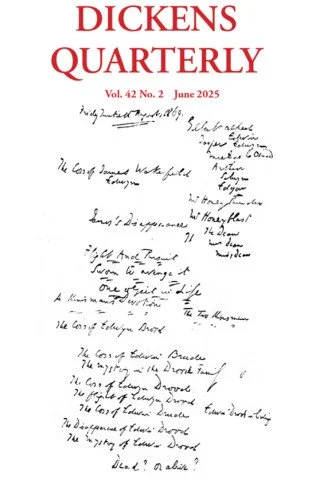 DICKENS
QUARTERLY
Vol. 42 No. 2 June 2025
Friday Twentieth August, 1869.
Gilbert Alfred
Edwin
Jasper Edwyn
Michael Oswald
Arthur
Edwyn
Edgar
The Loss of James Wakefield
Edwyn
Mr Honeythunder
Mr Honeyblast
James's Disappearance
The Dean
Mrs Dean
Miss Dean
Flight And Pursuit
Sworn to avenge it
One Object in Life
A Kinsman's Devotion
The Two Kinsmen
The Loss of Edwyn Brood
The Loss of Edwin Brude
The Mystery in the Drood Family
The Loss of Edwyn Drood
The flight of Edwyn Drood
Edwin Drood in hiding
The Loss of Edwin Drude
The Disappearance of Edwin Drood
The Mystery of Edwin Drood
Dead? or alive?